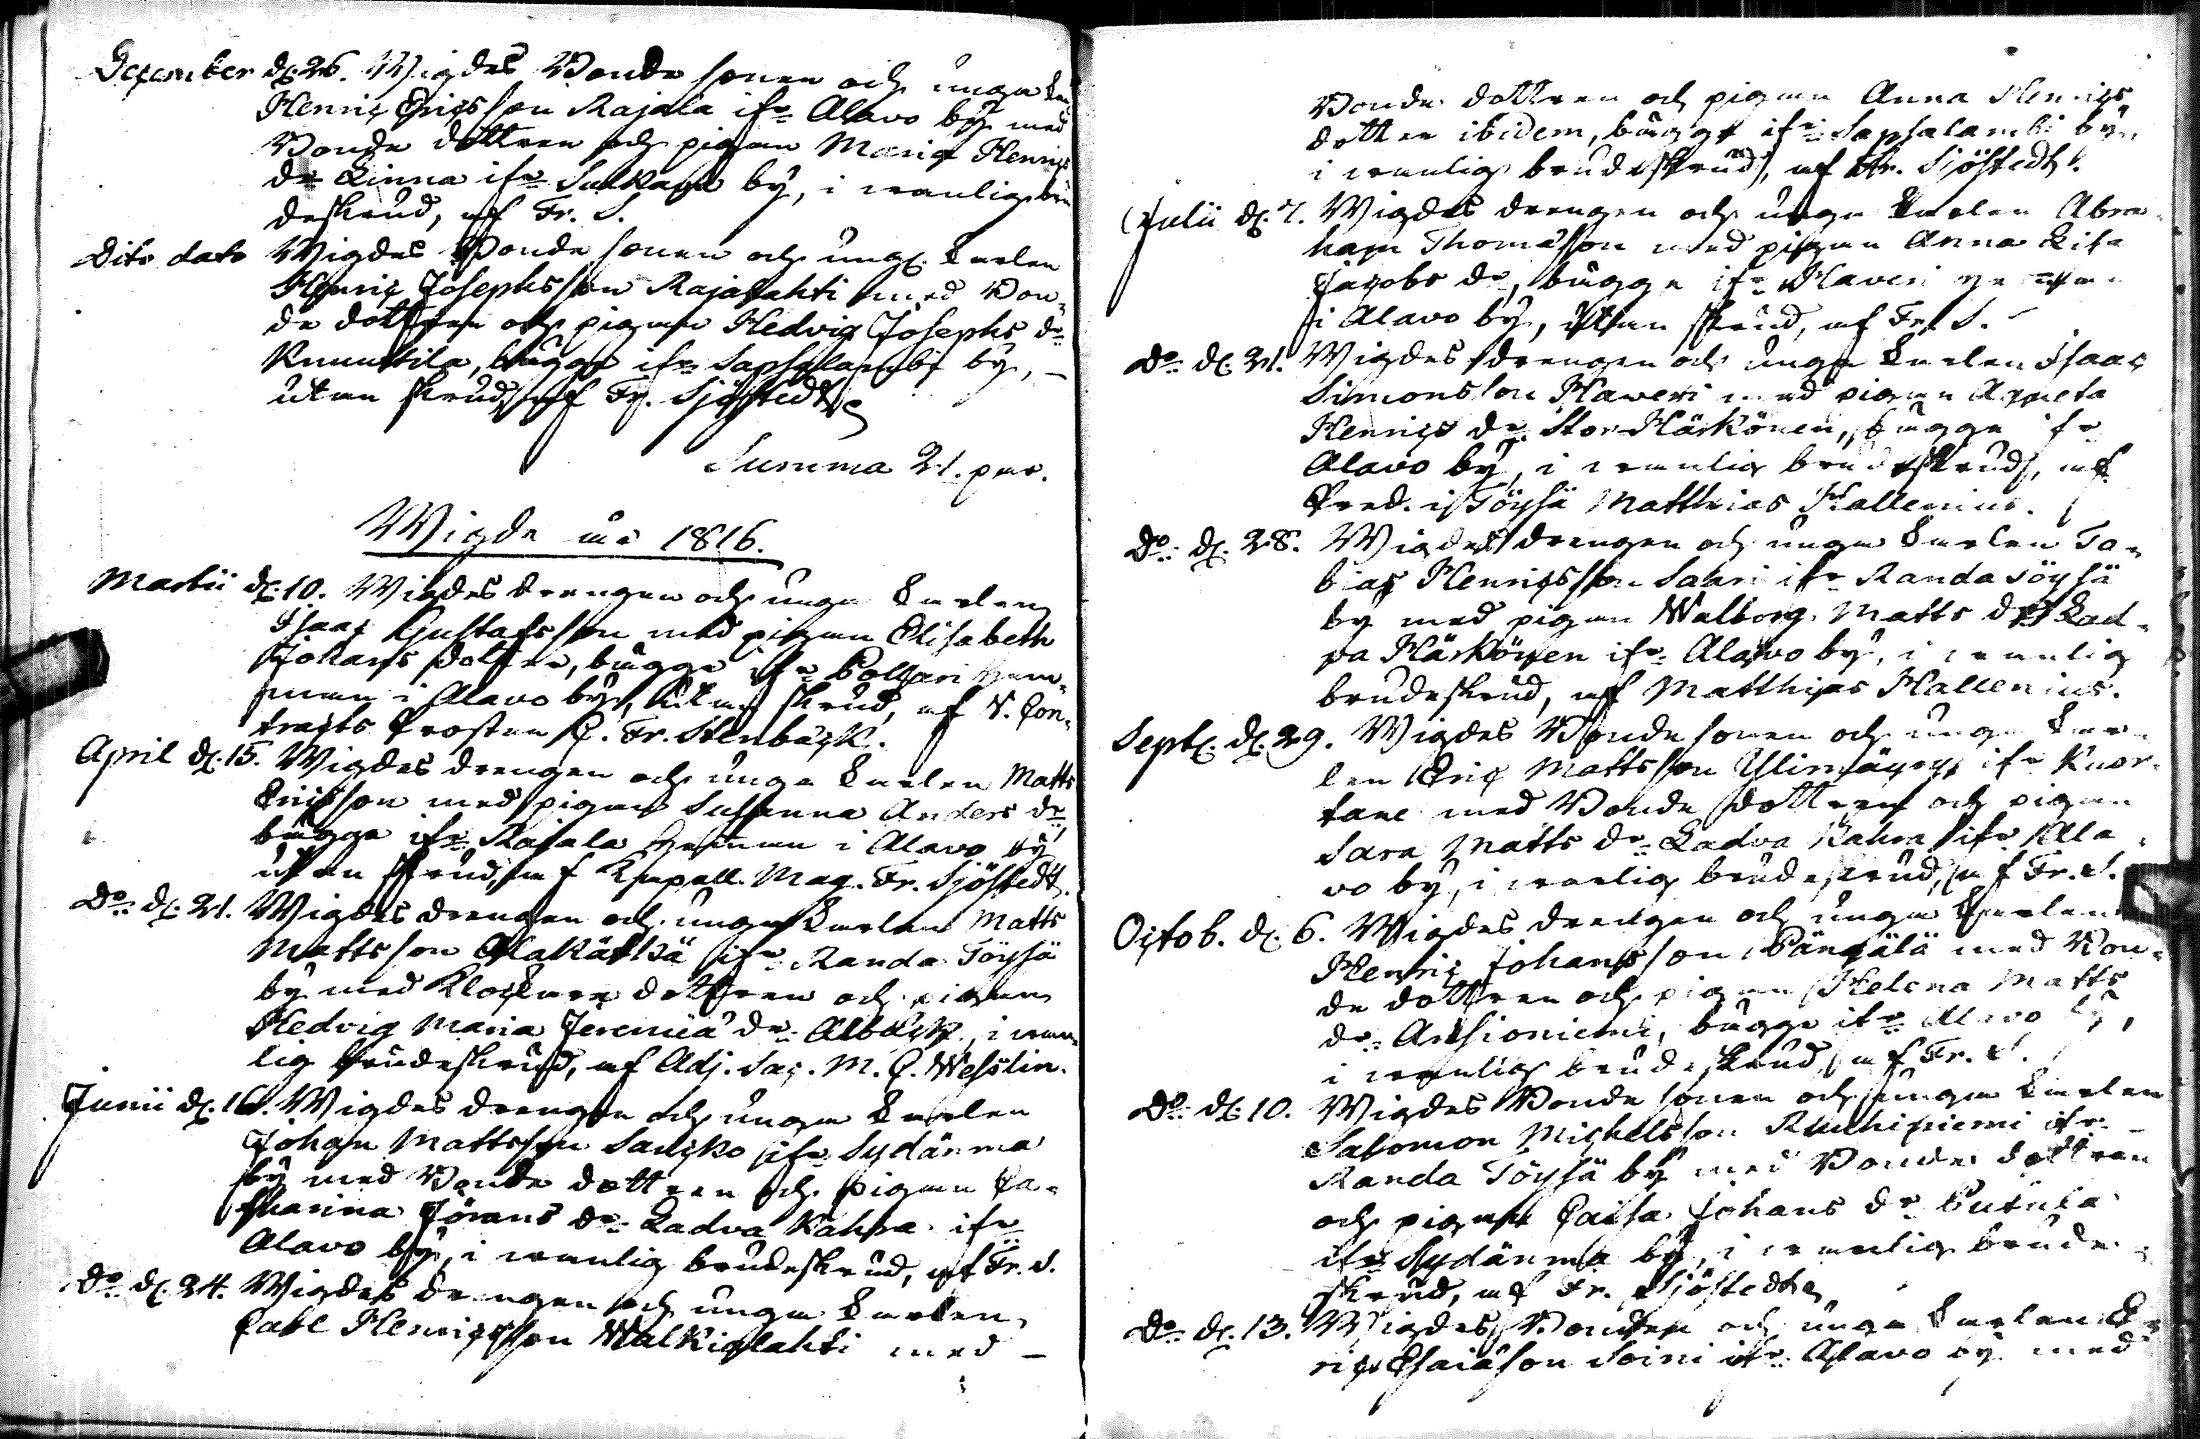 December d. 26. Wigdes Bonde sonen och unga Kar
Henric Ericsson Rajala ifr. Alavo by med
Bonde dottren och pigan Maria Henrics
dr Linna ifr. Sulkava by, i wanlig bru
deskrud, af Fr. S.
Dito dato Wigdes Bonde sonen och ung. Karlen
Henric Josephsson Rajalahti med Bon-
de dottren och pigan Hedvig Josephs dr.
Knuuttila, bägge ifr. Sapsalambi by,
utan skrud af Fr. Sjöstedt
Summa 21. par.
Wigde år 1816.
Martii d. 10. Wigdes drengen och unga Karlen
Isaac Gustafsson med pigan Elisabeth
Johans dotter, bägge ifr. Pollari hem-
man i Alavo by, utan skrud, af V. Con-
tracts Prosten C. Fr. Stenbäck.
April d. 15. Wigdes drengen och unga Karlen Matts
Ericsson med pigan Susanna Anders dr.
bägge ifr. Rajala hemman i Alavo by
utan skrud, af Kapell. Mag. Fr. Sjöstedt.
Do. d. 21. Wigdes drengen och unga Karlen Matts
Mattsson Alakätkä ifr. Randa Töysä
by med Klockare dottren och pigan
Hedvig Maria Jeremiæ dr. Albäck, i wan-
lig brudeskrud, af Adj. Sac. M. C. Weslin.
Junii d. 16. Wigdes drengen och unga Karlen
Johan Mattsson Saucko ifr. Sydänma
by med Bonde dottren och pigan Ca-
tharina Jörans dr. Ladva Kahra ifr.
Alavo by, i wanlig brudeskrud, af Fr. S.
Do. d. 24. Wigdes drengen och unga Karlen
Carl Henricsson Walkialahti med
Bonde dottren och pigan Anna Henrics
dotter ibidem, bägge ifr. Sapsalambi by,
i wanlig brudeskrud, af Fr. Sjöstedt.
Julii d. 7. Wigdes drengen och unga Karlen Abra-
ham Thomasson med pigan Anna Lisa
Jacobs dr, bägge ifr. Haveri hemman
i Alavo by, utan skrud, af Fr. S.
Do. d. 21. Wigdes drengen och unga Karlen Isaac
Simonsson Haweri med pigan Agneta
Henrics dr. Stor Härkönen, bägge ifr
Alavo by, i wanlig brudeskrud, af
Pred. i Töysä Matthias Hallenius.
Do. d. 28. Wigdes drengen och unga Karlen To-
bias Henricsson Saari ifr Randa Töysä
by med pigan Walborg Matts dr Lad-
va Härkönen ifr. Alavo by, i wanlig
brudeskrud, af Matthias Hallenius.
Sept. d. 29. Wigdes Bonde sonen och unga Kar-
len Eric Mattsson Ylimäyry ifr Kuor-
tane med Bonde dottren och pigan
Sara Matts dr. Ladva Kahra ifr Ala
vo by, i wanlig brudeskrud, af Fr. S.
Octob. d. 6. Wigdes drengen och unga Karlen
Henric Johansson Pängälä med Bon-
de dottren och pigan Helena Matts
dr. Ansioniemi, bägge ifr. Alavo by,
i wanlig brudeskrud, af Fr. S.
Do. d. 10. Wigdes Bonde sonen och unga Karlen
Salomon Michelsson Ruuhiniemi ifr.
Randa Töysä by med Bonde dottren
och pigan Caisa Johans dr Putula
ifr. Sydänma by, i wanlig brude-
skrud, af Fr. Sjöstedt
Do. d. 13. Wigdes Bonden och unga Karlen E-
ric Esaiæson Soini ifr. Alavo by med